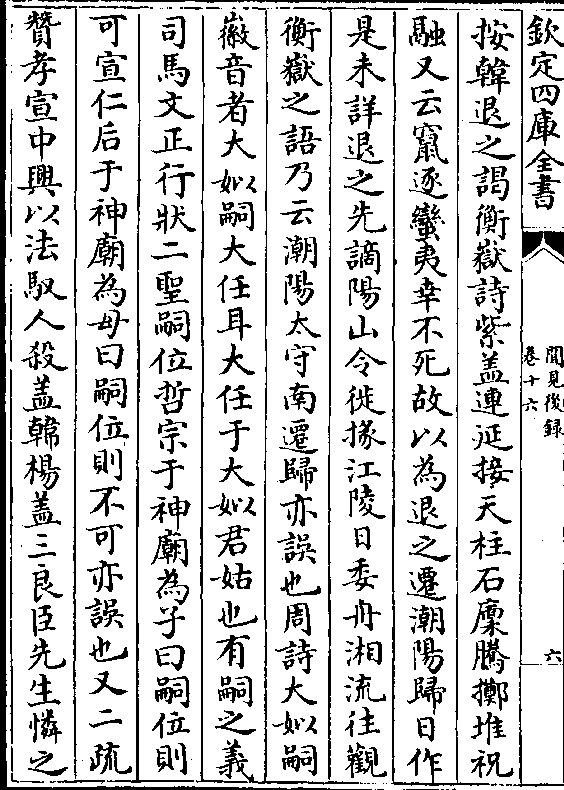 欽定四庫全書
聞見後録
卷十六
六
按韓退之謁衡嶽詩紫盖連延接天柱石廩騰擲堆祝
融又云竄逐蠻夷幸不死故以為退之遷潮陽歸日作
是未詳退之先謫陽山令徙掾江陵日委舟湘流往觀
衡嶽之語乃云潮陽太守南遷歸亦誤也周詩大姒嗣
徽音者大姒嗣大任耳大任于大姒君姑也有嗣之義
司馬文正行狀二聖嗣位哲宗于神廟為子曰嗣位則
可宣仁后于神廟為母曰嗣位則不可亦誤也又二疏
贊孝宣中興以法馭人殺盖韓楊盖三良臣先生憐之